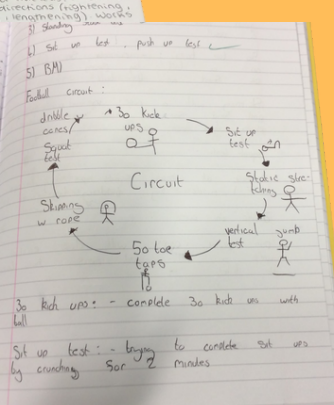 directions (tightening,
lengthening) works
3) Standing
4) Sit up test, push up test
5) BMI
Football circuit:
dribble
cones
30 kick
ups
Sit up
test
Static stre-
tching
vertical jumb
test
50 toe
taps
Skinning
w rope
Squat
test
Circuit
30 kick ups: - complete 30 kick ups with
ball
Sit up test: - trying to complete sit ups
by crunching for 2 minutes